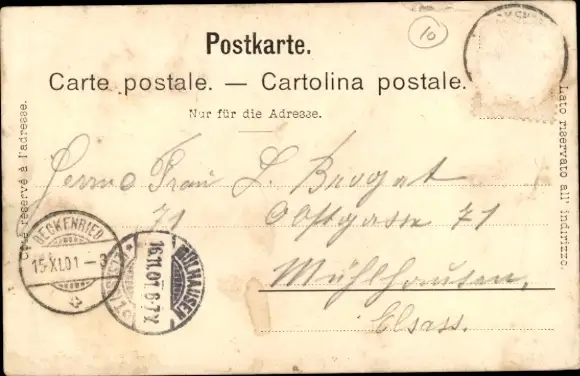 10
Postkarte.
Carte postale. — Cartolina postale.
Nur für die Adresse.
Côté réservé à l'adresse.
Lato riservato all' indirizzo.
Frau L.
71 71
Mühlhausen,
Elsass.
BECKENRIED
15.XI.01-3
MÜLHAUSEN
16.11.01.6-7.V